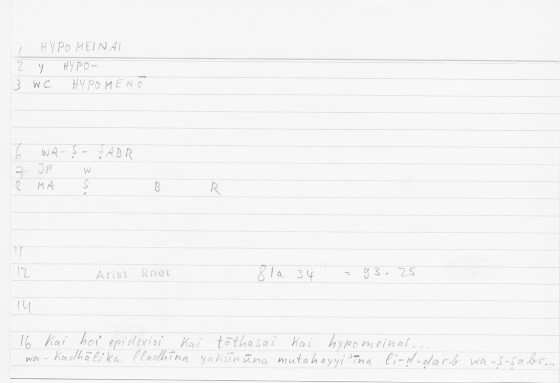 1 HYPOMEINAI
2 y HYPO-
3 WC HYPOMENŌ
6 WA-Ṣ-ṢABR
7 IP W
8 MA Ṣ B R
11
12 Arist Rhet 81a 34 = 93.25
14
16 kai hoi epidexioi kai tōthasai kai hypomeinai...
wa-kadhālika lladhīna yakūnūna mutahayyi'īna li-ḍ-ḍarb wa-ṣ-ṣabr...